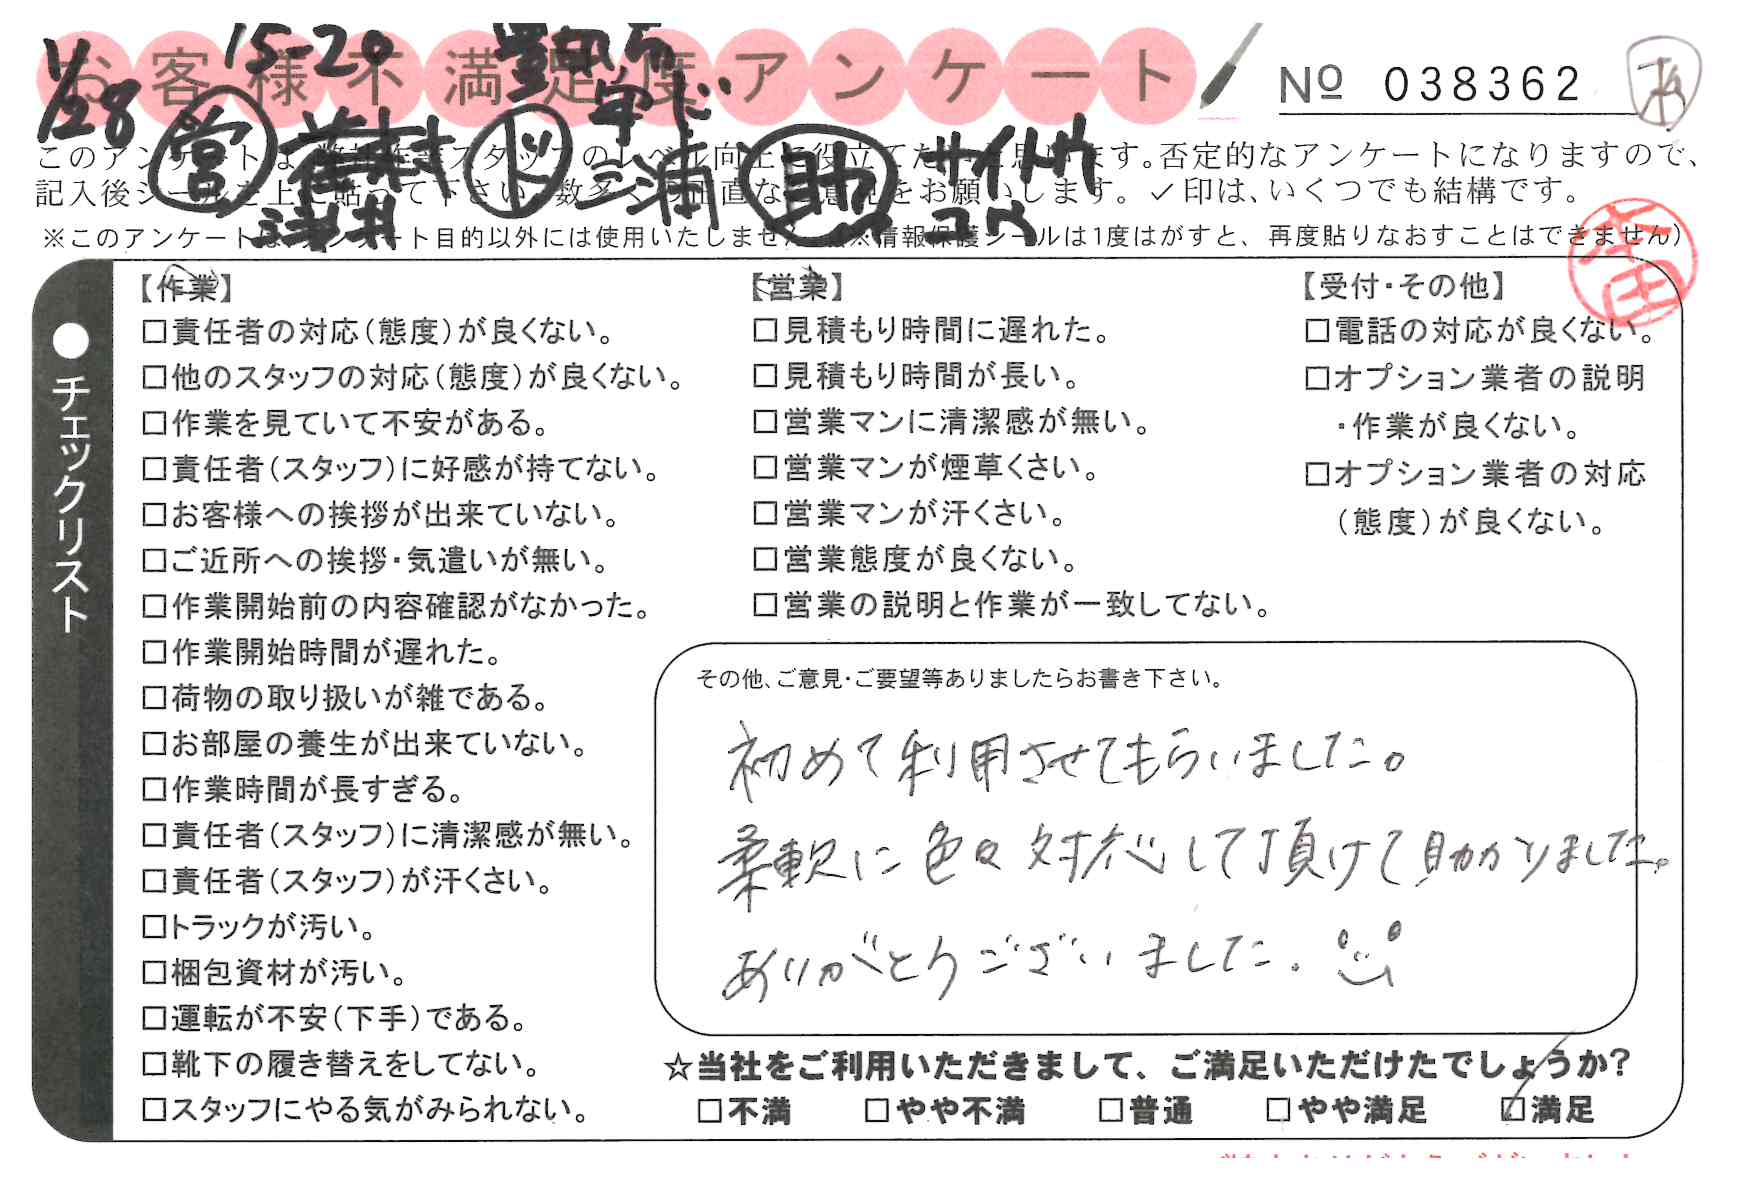 お客様不満足度アンケート
№ 038362
1/28
15-20
営
ド 三浦
助 サイトウ
浅井
このアンケートは、弊社作業スタッフのレベル向上に役立てたいと思います。否定的なアンケートになりますので、
記入後シールを上に貼って下さい。数多くの正直なご意見をお願いします。✓印は、いくつでも結構です。
※このアンケートはアンケート目的以外には使用いたしません。(※情報保護シールは1度はがすと、再度貼りなおすことはできません)
本田
●チェックリスト
【作業】
□責任者の対応(態度)が良くない。
□他のスタッフの対応(態度)が良くない。
□作業を見ていて不安がある。
□責任者(スタッフ)に好感が持てない。
□お客様への挨拶が出来ていない。
□ご近所への挨拶・気遣いが無い。
□作業開始前の内容確認がなかった。
□作業開始時間が遅れた。
□荷物の取り扱いが雑である。
□お部屋の養生が出来ていない。
□作業時間が長すぎる。
□責任者(スタッフ)に清潔感が無い。
□責任者(スタッフ)が汗くさい。
□トラックが汚い。
□梱包資材が汚い。
□運転が不安(下手)である。
□靴下の履き替えをしてない。
□スタッフにやる気がみられない。
【営業】
□見積もり時間に遅れた。
□見積もり時間が長い。
□営業マンに清潔感が無い。
□営業マンが煙草くさい。
□営業マンが汗くさい。
□営業態度が良くない。
□営業の説明と作業が一致してない。
【受付・その他】
□電話の対応が良くない。
□オプション業者の説明
・作業が良くない。
□オプション業者の対応
(態度)が良くない。
その他、ご意見・ご要望等ありましたらお書き下さい。
初めて利用させてもらいました。
柔軟に色々対応して頂けて助かりました。
ありがとうございました。
☆当社をご利用いただきまして、ご満足いただけたでしょうか?
□不満 □やや不満 □普通 □やや満足 ☑満足